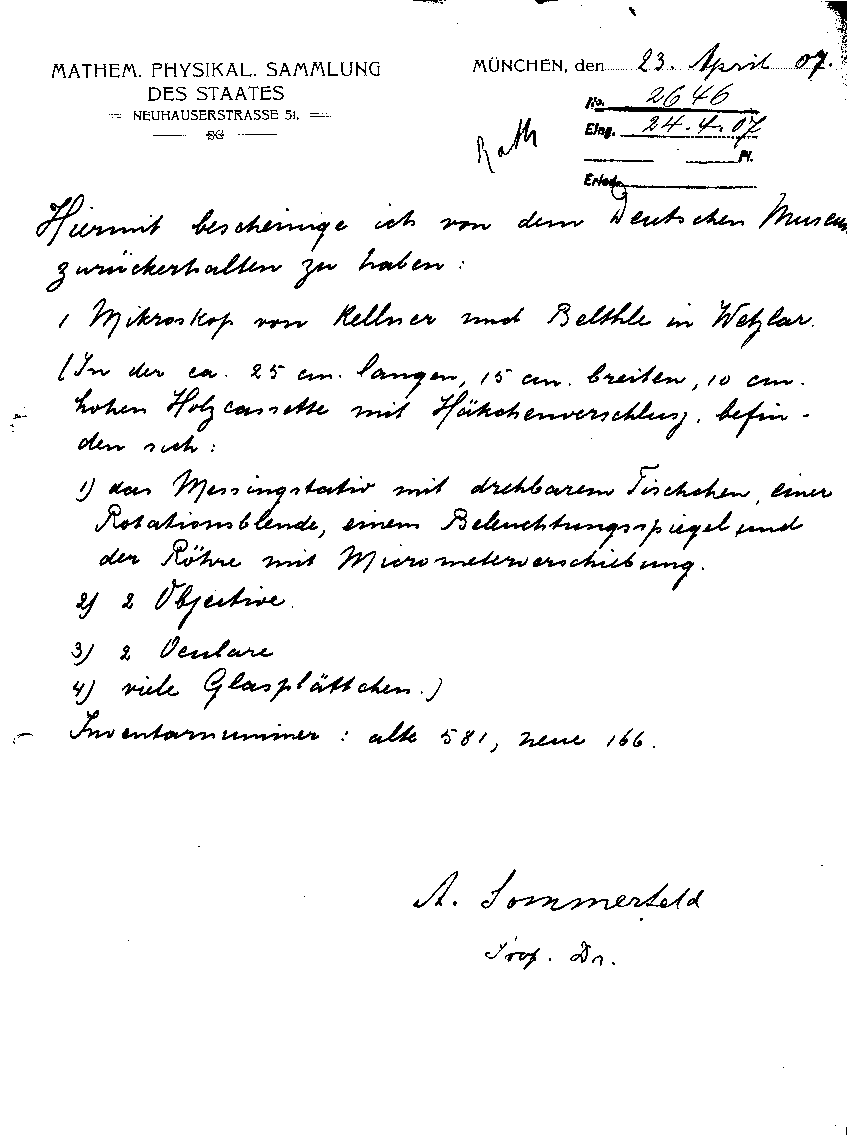 MATHEM. PHYSIKAL. SAMMLUNG
DES STAATES
NEUHAUSERSTRASSE 51.
MÜNCHEN, den 23. April 07.
No. 2646
Eing. 24.4.07
Pl.
Erled.
Hiermit bescheinige ich von dem Deutschen Museum
zurückerhalten zu haben:
1 Mikroskop von Kellner und Belthle in Wetzlar.
(In der ca. 25 cm. langen, 15 cm. breiten, 10 cm.
hohen Holzcassette mit Häkchenverschluss, befin-
den sich:
1) das Messingstativ mit drehbarem Tischchen, einer
Rotationsblende, einem Beleuchtungsspiegel und
der Röhre mit Micrometerverschiebung.
2) 2 Objective.
3) 2 Oculare
4) viele Glasplättchen.)
Inventarnummer: alte 581, neue 166.
A. Sommerfeld
Prof. Dr.